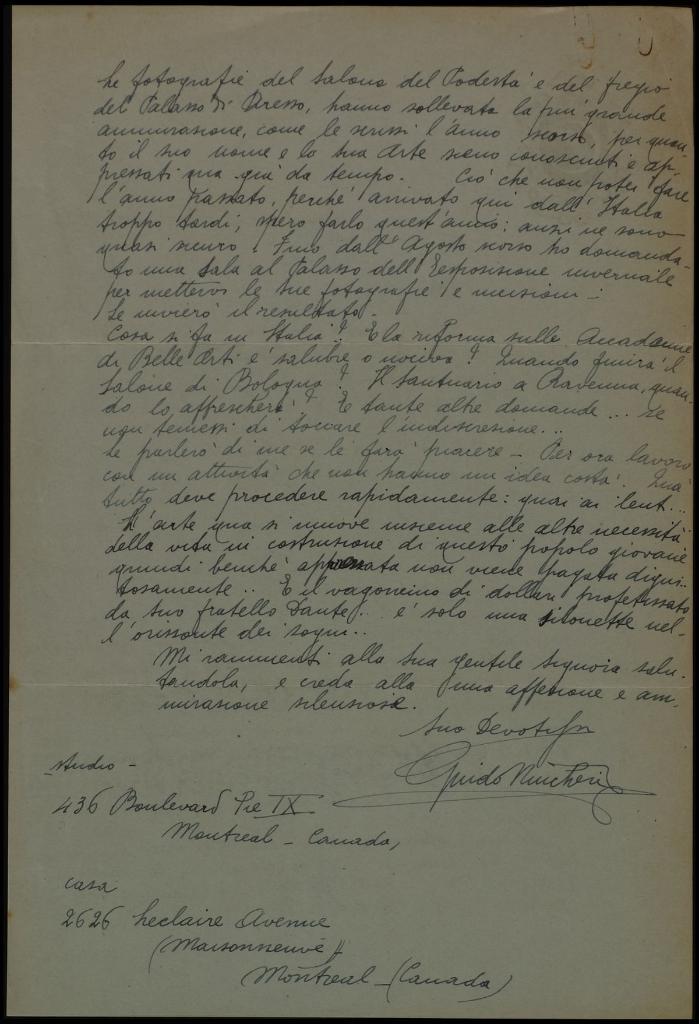 Le fotografie del Salone del Podestà e del fregio
del Palasso di Aresso, hanno sollevato la più grande
ammirasione, come le scrissi l'anno scorso, per quan-
to il suo nome e la sua Arte sieno conosciuti e ap-
pressati qua da tempo. Ciò che non potei fare
l'anno passato, perchè arrivato qui dall'Italia
troppo tardi, spero farlo quest'anno: anzi ne sono
quasi sicuro. Fino dall'Agosto scorso ho domanda-
to una Sala al Palasso dell'Esposisione invernale
per mettervi le sue fotografie e incisioni _
Le invierò il resultato.
Cosa si fa in Italia? E la riforma sulle Accademie
di Belle Arti è salubre o nociva? Quando finirà il
Salone di Bologna? Il Santuario a Ravenna, quan-
do lo affrescherà? E tante altre domande... se
non temessi di toccare l'indiscresione...
Le parlerò di me se le farà piacere _ Per ora lavoro
con un attività che non hanno un idea costà. Quà
tutto deve procedere rapidamente: guai ai lenti...
L'arte qua si muove insieme alle altre necessità
della vita in costrusione di questo popolo giovane
quindi benchè appressata non viene pagata digni-
tosamente.. E il vagoncino di dollari profetissato
da suo fratello Dante.. è solo una silouette nel-
l'orissonte dei sogni..
Mi rammenti alla sua gentile Signora salu-
tandola, e creda alla mia affesione e am-
mirasione silensiosa.
Suo Devotissimo
Guido Nincheri
studio -
436 Boulevard Pie IX
Montreal - Canada,
casa
2626 Leclaire Avenue
(Maisonneuve)
Montreal - (Canada)